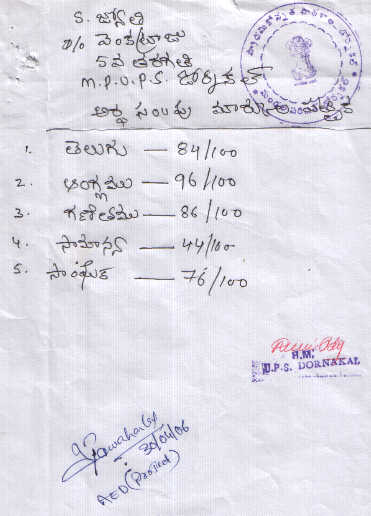 S. జ్యోతి
D/o వెంకట్రాజు
5వ తరగతి
M.P.U.P.S. డోర్నకల్
అర్థ సంలపు మార్కుల పత్రిక
1. తెలుగు — 84/100
2. ఆంగ్లము — 96/100
3. గణితము — 86/100
4. సామాన్య — 44/100
5. సాంఘిక — 76/100
H.M.
U.P.S. DORNAKAL
30/04/06
AED (Project)